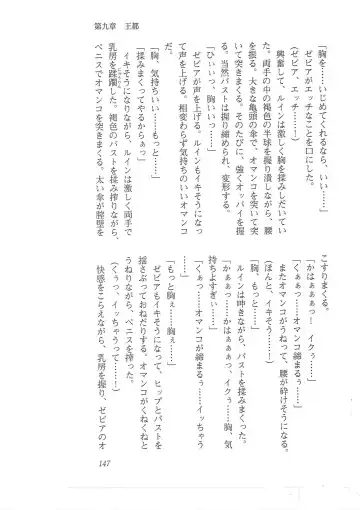 第九章　王都
「胸を……いじめてくれるなら、いい……」
ゼビアが、エッチなことを口にした。
興奮して、ルインは激しく胸を揉みしだいてい
た。両手の中の褐色の半球を握り潰しながら、腰
を振る。大きな亀頭の傘で、オマンコを突いて突
きまくる。そのたびに、強くオッパイを握
る。当然バストは握り締められ、変形する。
「ひぃぃっ、胸いいっ……！」
ゼビアが声を上げる。ルインもイキそうになっ
て声を上げる。相変わらず気持ちのいいオマンコ
だ。
「胸、気持ちいぃ……もっと……」
「揉みまくってやるからぁっ」
イキそうになりながら、ルインは激しく両手で
乳房を蹂躙した。褐色のバストを揉み搾りながら、
ペニスでオマンコを突きまくる。太い傘が膣壁を
こすりまくる。
「かはぁぁぁっ！　イクぅ……」
「くぁぁっ……オマンコが締まるぅ……」
またオマンコがうねって、腰が砕けそうになる。
（ほんと、イキそう……！）
「胸、もっと……」
ルインは呻きながら、バストを揉みまくった。
「かぁぁっ……かはぁぁぁっ、イクぅ……胸、気
持ちよすぎぃ……」
「くぁっ……オマンコが締まるぅ……イッちゃう
……」
「もっと胸ぇ……胸ぇ……」
ゼビアもイキそうになって、ヒップとバストを
揺さぶっておねだりする。オマンコがくねくねと
うねりながら、ペニスを搾った。
（くぅっ、イッちゃうって……！）
快感をこらえながら、乳房を握り、ゼビアのオ
147